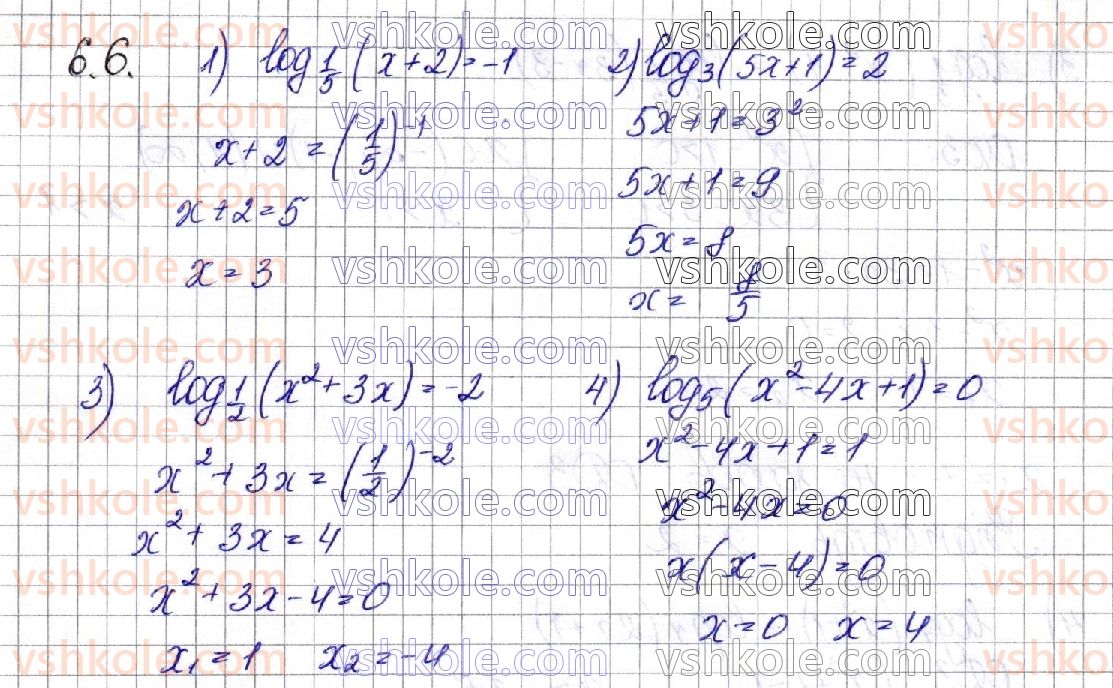 6.6. 1) log_{1/5}(x+2)=-1
x+2=(1/5)^{-1}
x+2=5
x=3
2) log_3(5x+1)=2
5x+1=3^2
5x+1=9
5x=8
x=8/5
3) log_{1/2}(x^2+3x)=-2
x^2+3x=(1/2)^{-2}
x^2+3x=4
x^2+3x-4=0
x_1=1 x_2=-4
4) log_5(x^2-4x+1)=0
x^2-4x+1=1
x^2-4x=0
x(x-4)=0
x=0 x=4
vshkole.com